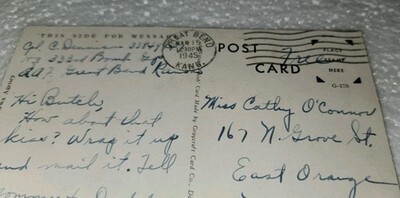 THIS SIDE FOR MESSAGE
Cpl. C. Dennison 33
332nd Bomb Gp
AAF, Great Bend Kansas
GREAT BEND
MAR
1945
KANS.
POST
CARD
Free
PLACE
HERE
G-176
Hi Butch,
How about that
kiss? Wrap it up
and mail it. Tell
Miss Cathy O'Connor
167 N. Grove St.
East Orange